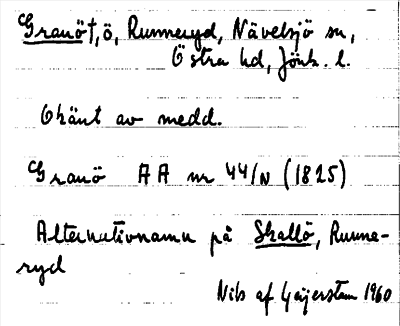 Granö†, ö, Runneryd, Nävelsjö sn,
Östra hd, Jönk. l.
Okänt av medd.
Granö AA nr 44/N (1825)
Alternativnamn på Skallö, Runne-
ryd
Nils af Geijerstam 1960